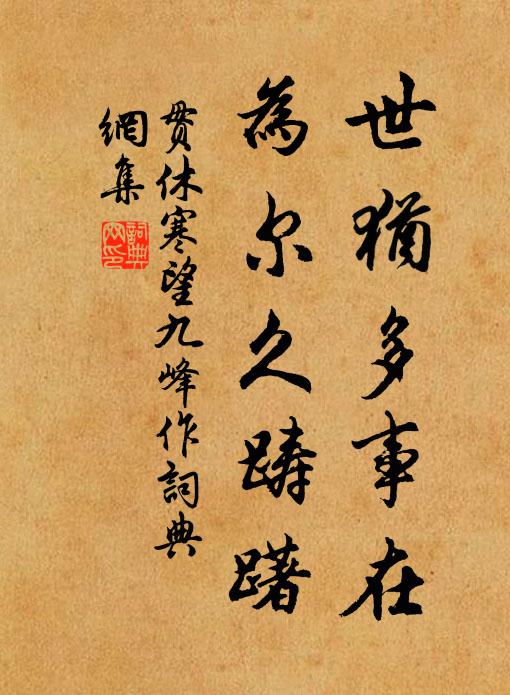 世猶多事在
為尔久躊躇
貫休寒望九峰作詞典
網集
詞典
网印